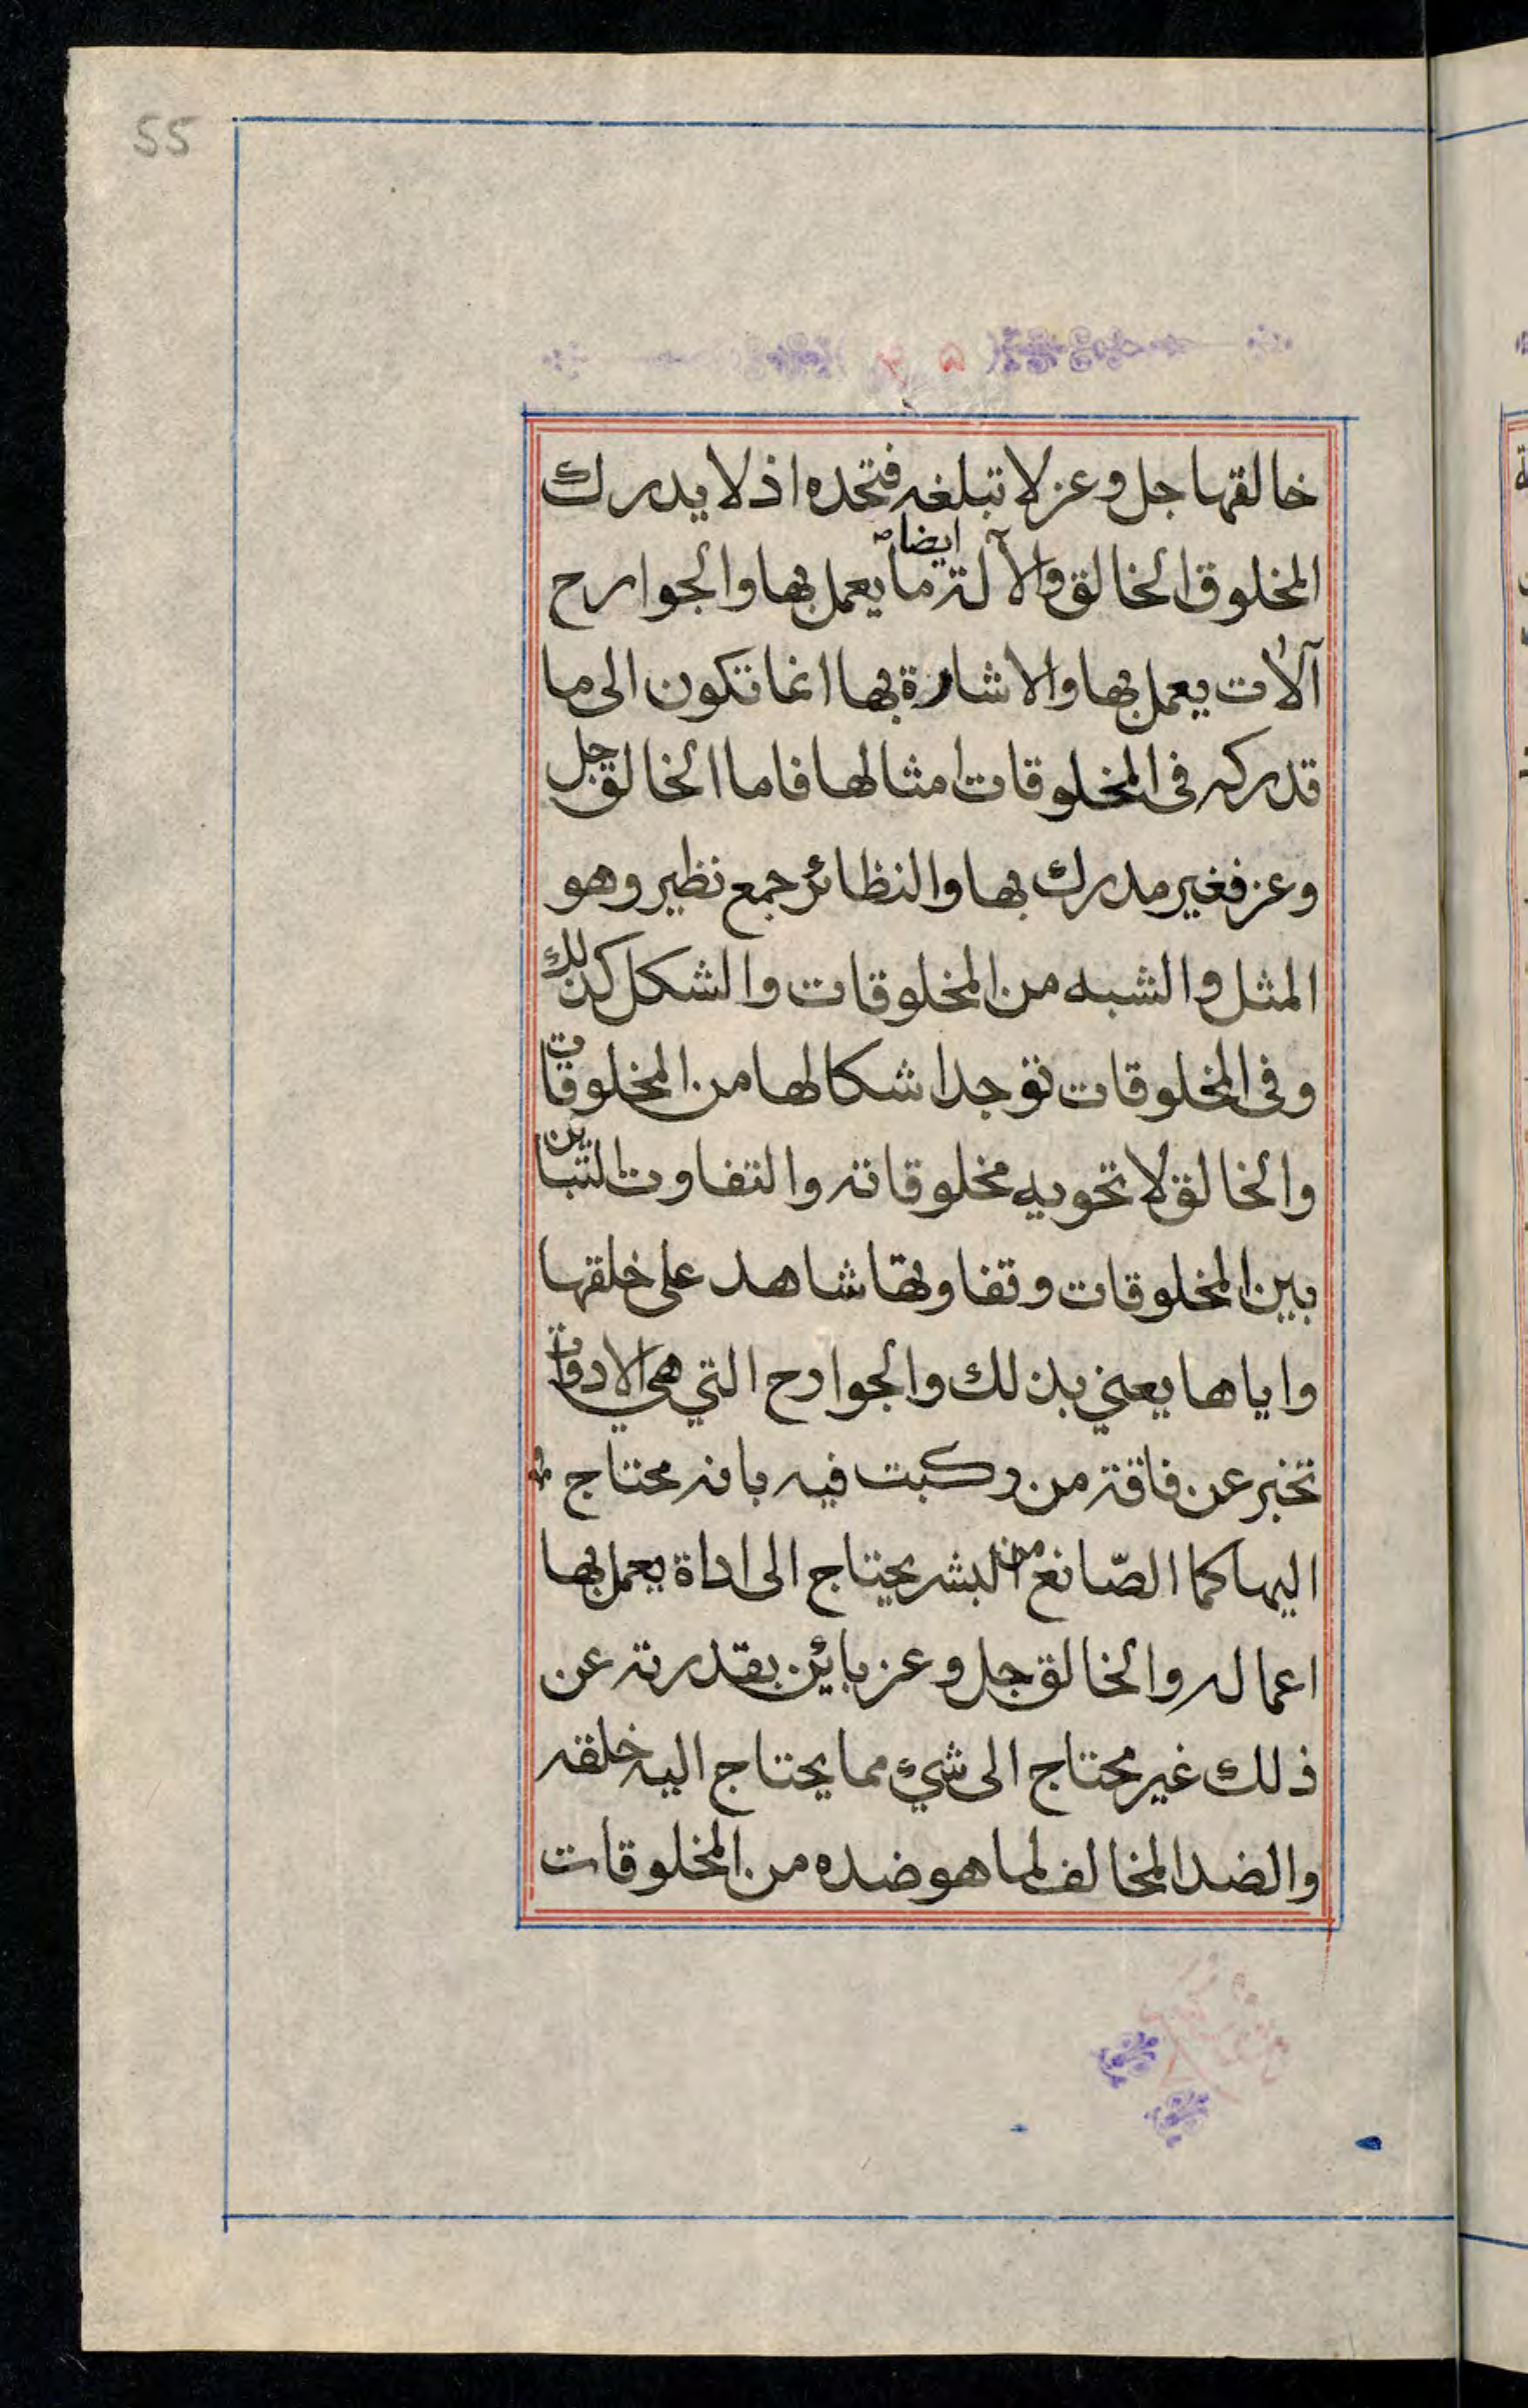 55
خالقها جل وعز لا تبلغه فتحده اذ لا يدرك
المخلوق الخالق والآلة ايضا ما يعمل بها والجوارح
آلات يعمل بها والاشارة بها انما تكون الى ما
تدركه فى المخلوقات امثالها فاما الخالق جل
وعز فغير مدرك بها والنظائر جمع نظير وهو
المثل والشبه من المخلوقات والشكل كذلك
وفى المخلوقات توجد اشكالها من المخلوقات
والخالق لا تحويه مخلوقاته والتفاوت التباين
بين المخلوقات وتفاوتها شاهد على خلقها
واياها يعني بذلك والجوارح التي هي الادوات
تخبر عن فاقة من ركبت فيه بانه محتاج
اليها كما الصّانع من البشر يحتاج الى اداة يعمل بها
اعماله والخالق جل وعز بائن بقدرته عن
ذلك غير محتاج الى شيء مما يحتاج اليه خلقه
والضد المخالف لما هو ضده من المخلوقات